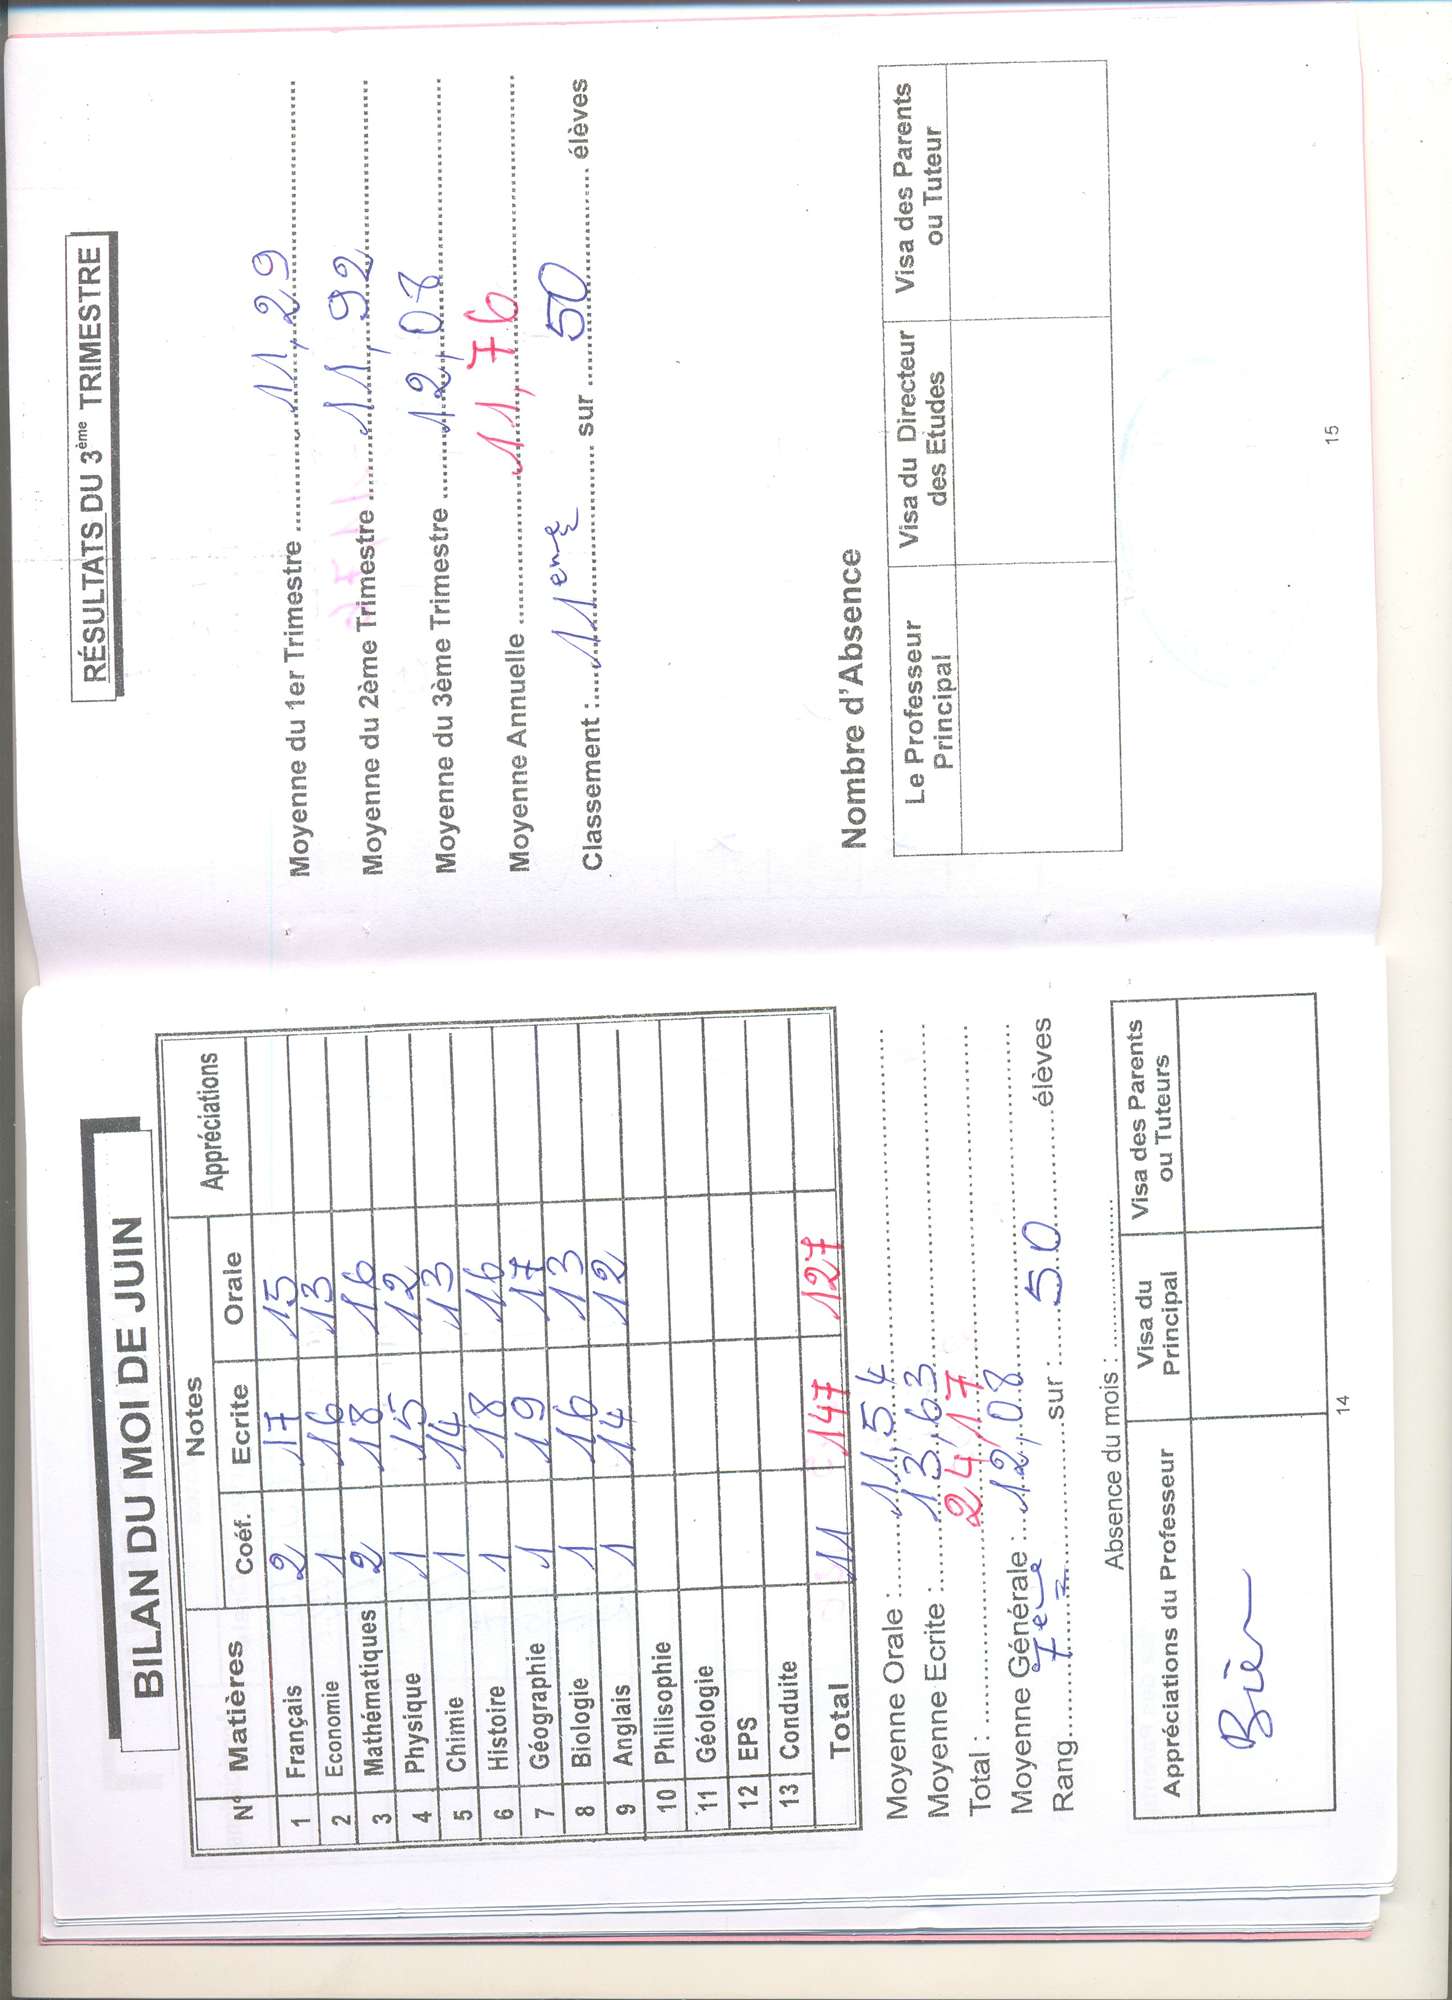 BILAN DU MOI DE JUIN
N° Matières Notes Appréciations
Coéf. Ecrite Orale
1 Français 2 17 15
2 Economie 1 16 13
3 Mathématiques 2 18 16
4 Physique 1 15 12
5 Chimie 1 14 13
6 Histoire 1 18 16
7 Géographie 1 19 17
8 Biologie 1 16 13
9 Anglais 1 14 12
10 Philisophie
11 Géologie
12 EPS
13 Conduite
Total 11 147 127
Moyenne Orale : 11,54
Moyenne Ecrite : 13,63
Total : 24,17
Moyenne Générale : 12,08
Rang 7eme sur : 50 élèves
Absence du mois :
Appréciations du Professeur Visa du Principal Visa des Parents ou Tuteurs
Bien
14
RÉSULTATS DU 3ème TRIMESTRE
Moyenne du 1er Trimestre 11,29
Moyenne du 2ème Trimestre 11,92
Moyenne du 3ème Trimestre 12,08
Moyenne Annuelle 11,76
Classement : 11eme sur 50 élèves
Nombre d'Absence
Le Professeur Principal Visa du Directeur des Etudes Visa des Parents ou Tuteur
15